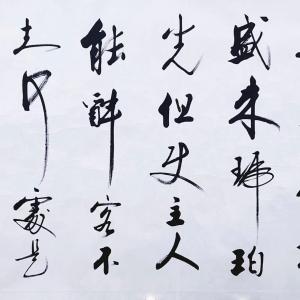 盛来琥珀
光但使主人
能醉客不
知何處是